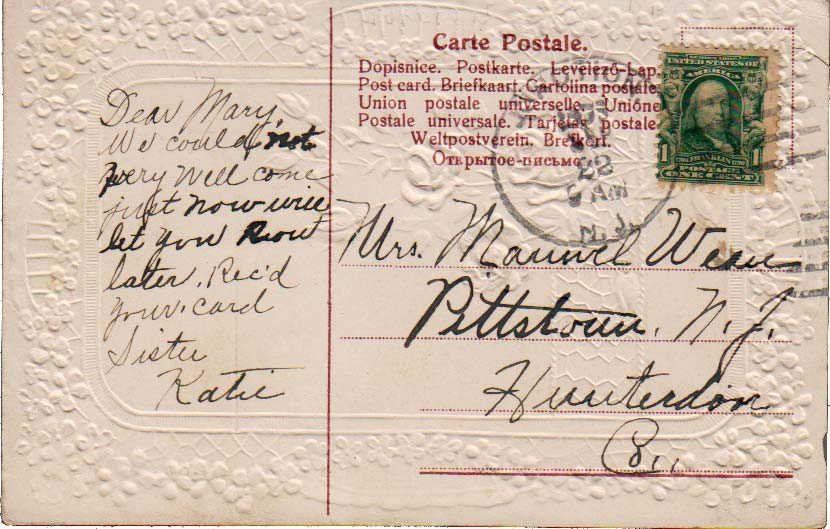 Carte Postale.
Dopisnice. Postkarte. Levelező-Lap.
Post card. Briefkaart. Cartolina postale.
Union postale universelle. Unione
Postale universale. Tarjetas postale
Weltpostverein. Brefkort.
Открытое-письмо
UNITED STATES OF
AMERICA
FRANKLIN
1 POSTAGE 1
ONE CENT
22
9 AM
N.J.
Dear Mary,
We could not
very well come
just now will
let you know
later. Rec'd
your card
Sister
Katie
Mrs. Manuel
Pittstown, N.J.
Hunterdon
Co.,